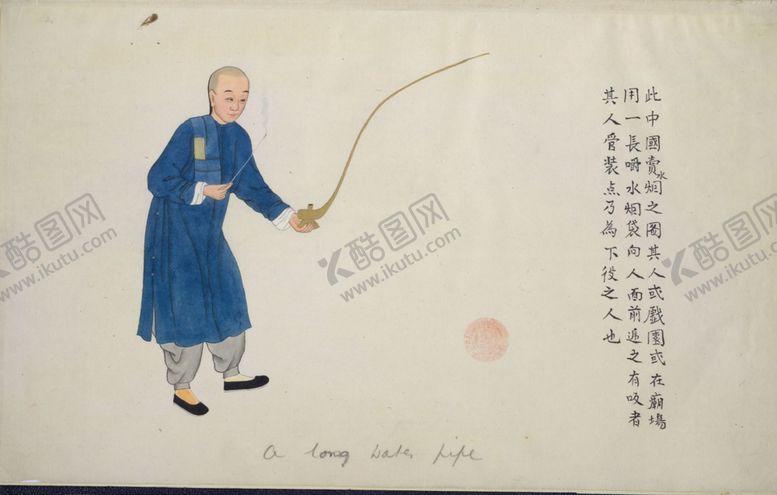 此中國賣水烟之圖其人或戲園或在廟場
用一長嚼水烟袋向人面前逓之有吸者
其人管裝点乃為下役之人也
a long water pipe
酷图网
www.ikutu.com
酷图网
www.ikutu.com
酷图网
www.ikutu.com